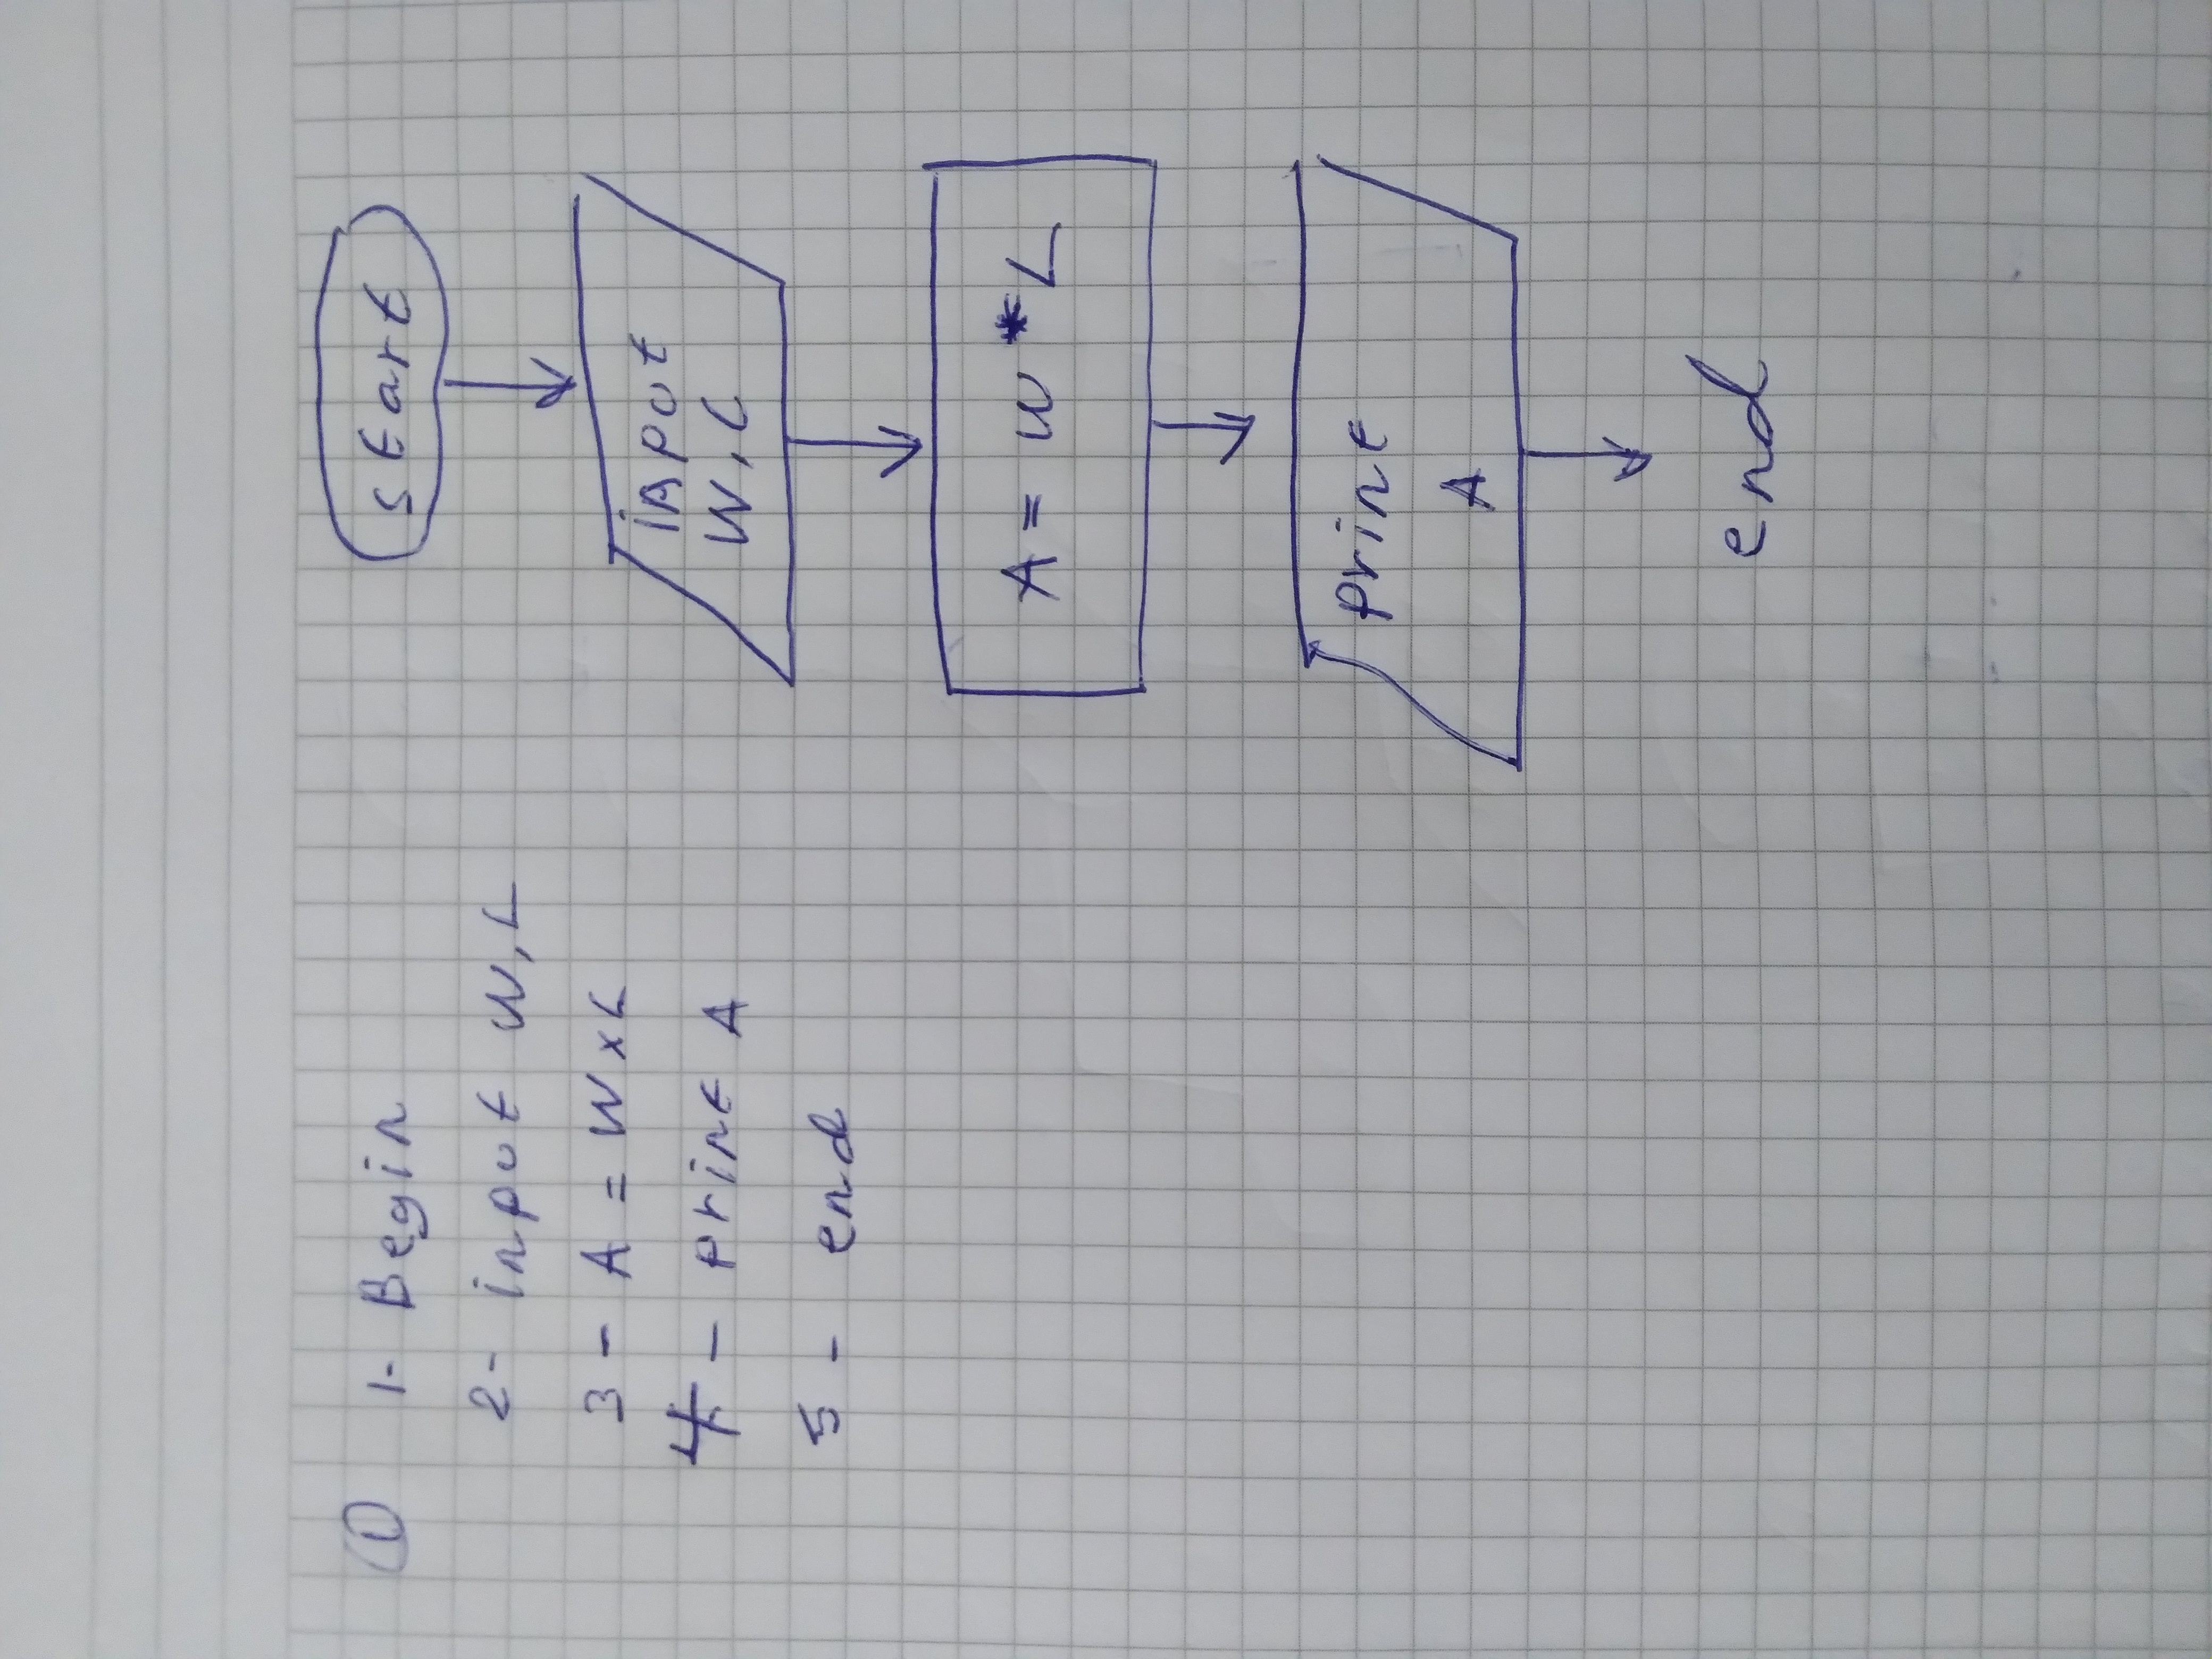 ① 1- Begin
2- input W, L
3 - A = W x L
4 - print A
5 - end
start
input
W, L
A = W * L
print
A
end